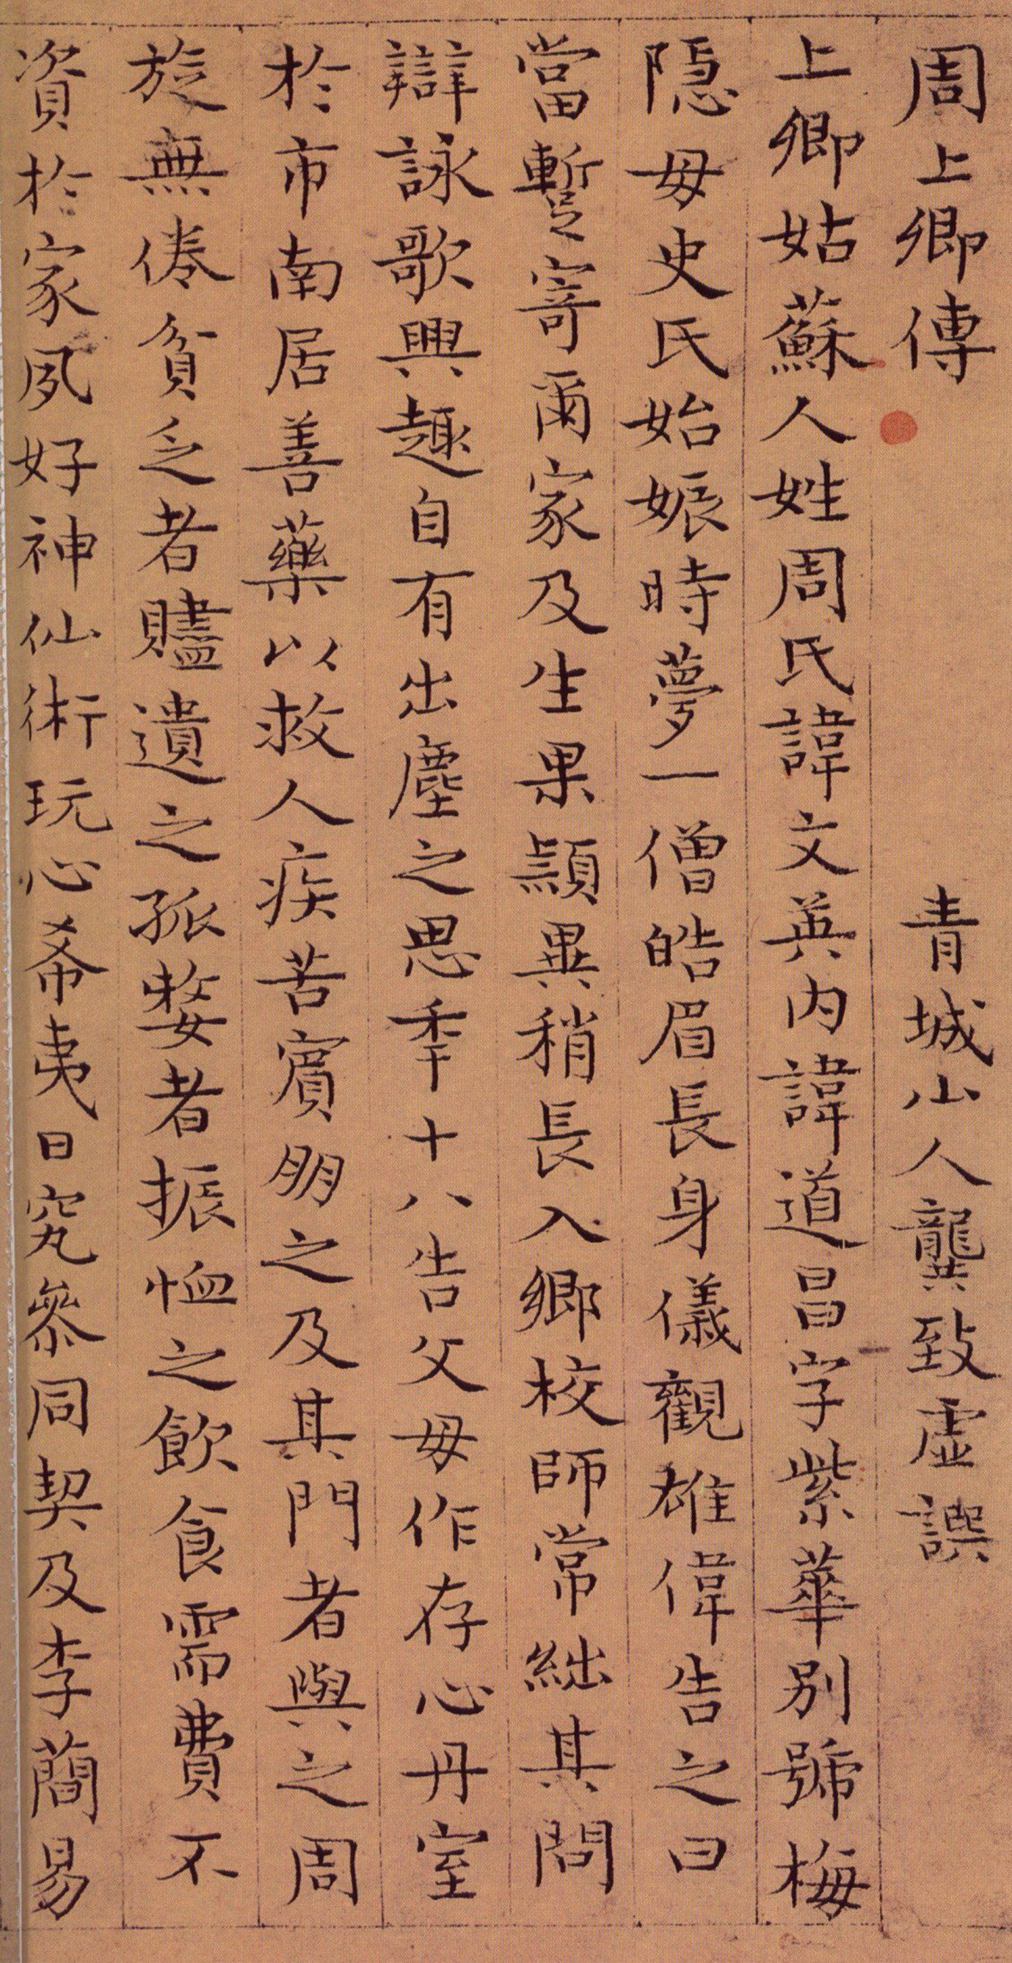 周上卿傳 青城山人龔致虛譔
上卿姑蘇人姓周氏諱文英內諱道昌字紫華別號梅
隱母史氏始娠時夢一僧皓眉長身儀觀雄偉告之曰
當蹔寄爾家及生果顥異稍長入鄉校師常絀其問
辯詠歌興趣自有出塵之思年十八告父母作存心丹室
於市南居善藥以救人疾苦賓朋之及其門者與之周
旋無倦貧乏者贐遺之孤嫠者振恤之飲食需費不
資於家夙好神仙術玩心希夷日究叅同契及李蕳易